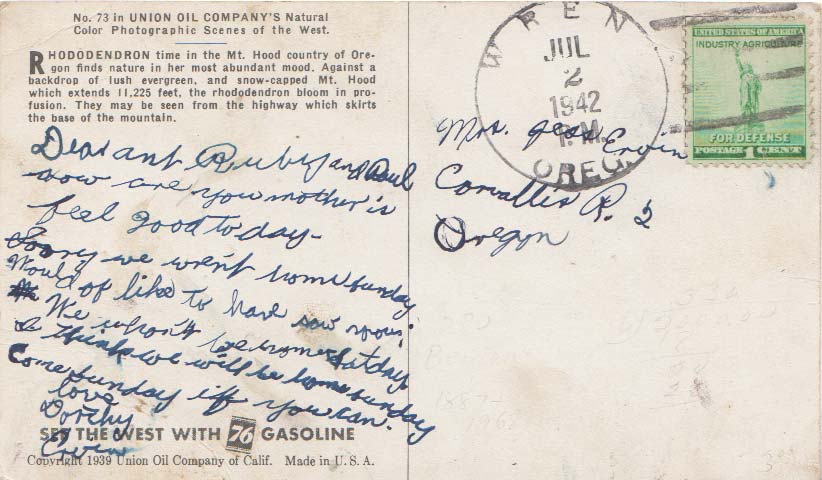 No. 73 in UNION OIL COMPANY'S Natural
Color Photographic Scenes of the West.
RHODODENDRON time in the Mt. Hood country of Ore-
gon finds nature in her most abundant mood. Against a
backdrop of lush evergreen, and snow-capped Mt. Hood
which extends 11,225 feet, the rhododendron bloom in pro-
fusion. They may be seen from the highway which skirts
the base of the mountain.
Dear ant Ruby and Paul
how are you mother is
feel good today-
Soory we wrent home sunday
Would of like to have saw you.
We whon't be home satday
I think we will be home sunday
Come sunday iff you can.
love
Dorthy
Ervin
SEE THE WEST WITH 76 GASOLINE
Copyright 1939 Union Oil Company of Calif. Made in U. S. A.
WREN
JUL
2
1942
P.M.
OREG.
UNITED STATES OF AMERICA
INDUSTRY AGRICULTURE
FOR DEFENSE
POSTAGE 1 CENT
Mrs. Jess Ervin
Corvallis R. 2
Oregon